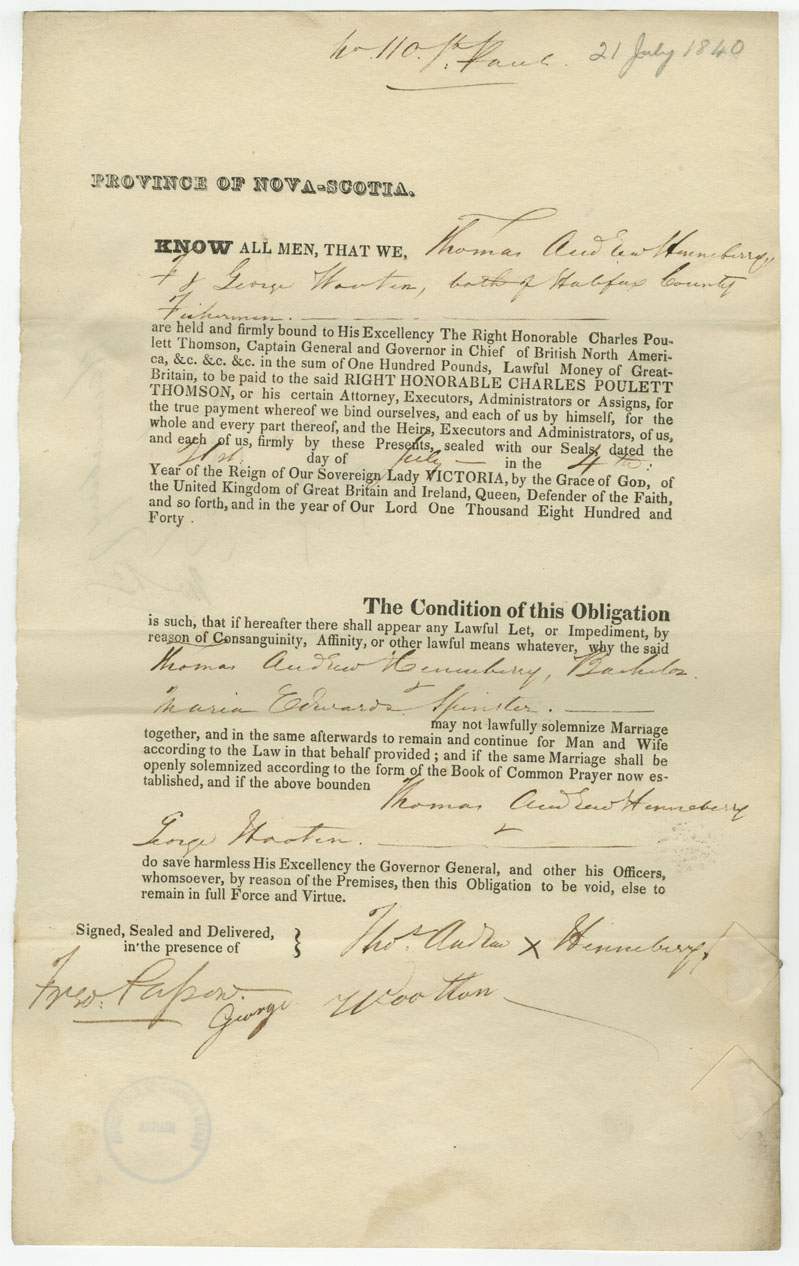 No. 110. St. Paul. 21 July 1840
PROVINCE OF NOVA-SCOTIA.
KNOW ALL MEN, THAT WE, Thomas Andrew Henneberry
& George Wooten, both of Halifax County
Fishermen.
are held and firmly bound to His Excellency The Right Honorable Charles Pou-
lett Thomson, Captain General and Governor in Chief of British North Ameri-
ca, &c. &c. &c. in the sum of One Hundred Pounds, Lawful Money of Great-
Britain, to be paid to the said RIGHT HONORABLE CHARLES POULETT
THOMSON, or his certain Attorney, Executors, Administrators or Assigns, for
the true payment whereof we bind ourselves, and each of us by himself, for the
whole and every part thereof, and the Heirs, Executors and Administrators, of us,
and each of us, firmly by these Presents, sealed with our Seals, dated the
21st. day of July in the 4th.
Year of the Reign of Our Sovereign Lady VICTORIA, by the Grace of GOD, of
the United Kingdom of Great Britain and Ireland, Queen, Defender of the Faith,
and so forth, and in the year of Our Lord One Thousand Eight Hundred and
Forty .
The Condition of this Obligation
is such, that if hereafter there shall appear any Lawful Let, or Impediment, by
reason of Consanguinity, Affinity, or other lawful means whatever, why the said
Thomas Andrew Henneberry, Bachelor.
Maria Edwards Spinster.
may not lawfully solemnize Marriage
together, and in the same afterwards to remain and continue for Man and Wife
according to the Law in that behalf provided ; and if the same Marriage shall be
openly solemnized according to the form of the Book of Common Prayer now es-
tablished, and if the above bounden Thomas Andrew Henneberry
George Wooten.
do save harmless His Excellency the Governor General, and other his Officers,
whomsoever, by reason of the Premises, then this Obligation to be void, else to
remain in full Force and Virtue.
Signed, Sealed and Delivered,
in the presence of } Thos. Andrew X Henneberry
George Wootton